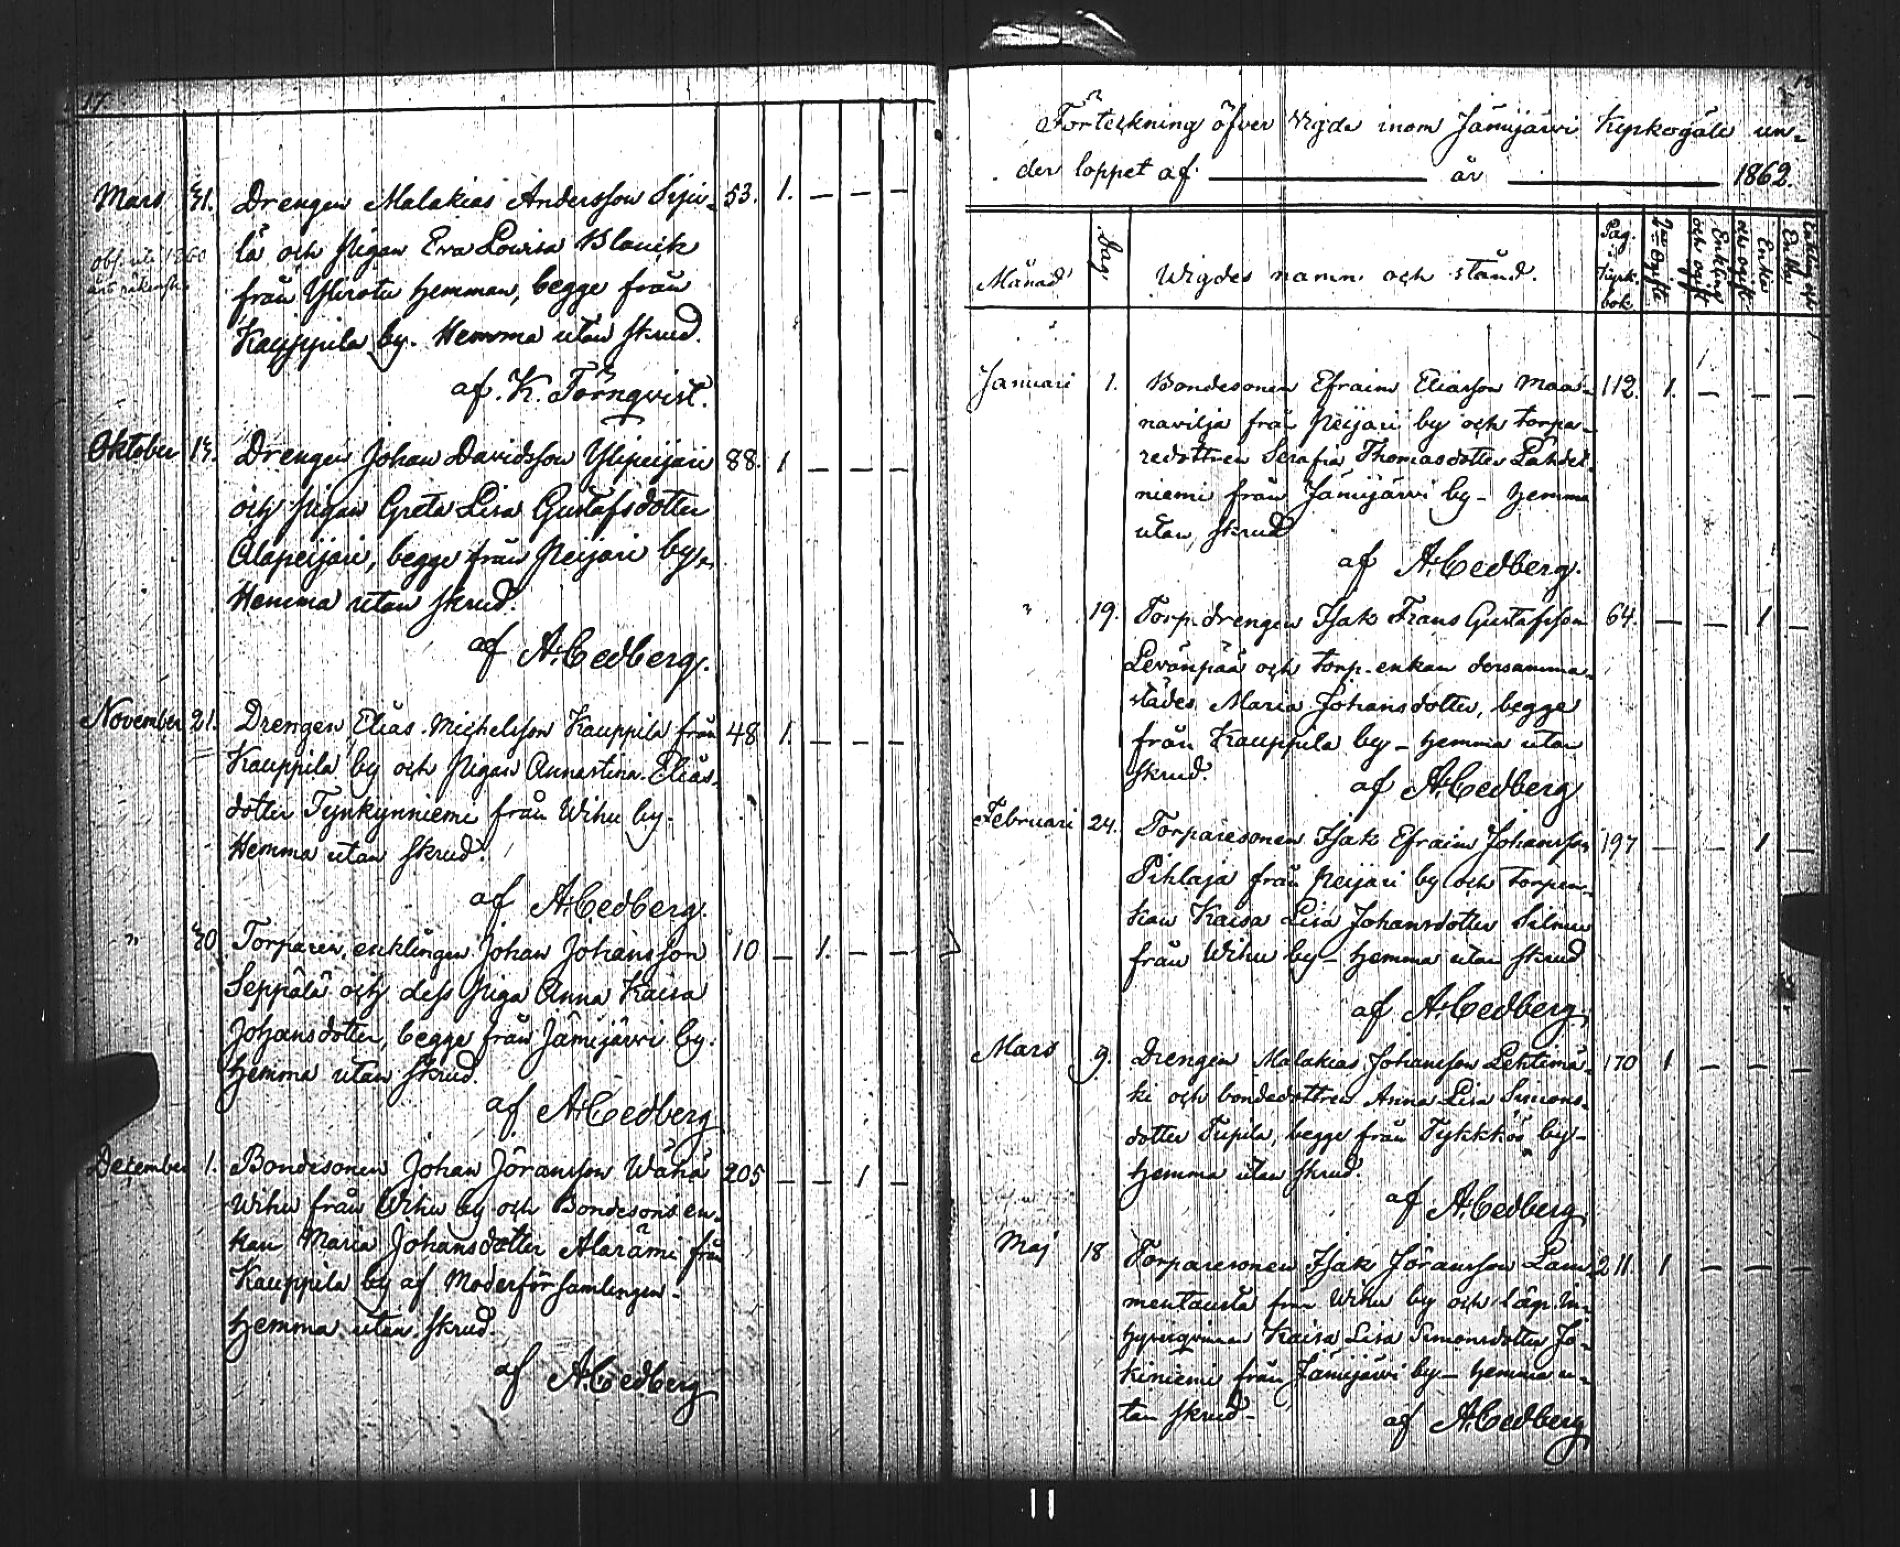 17
Mars 31. Drengen Malakias Andersson Sipi- 53. 1. — — —
lä och Pigan Eva Lowisa Blanik
från Yliroto hemman, begge från
Kauppila by. Hemma utan skrud.
af. K. Törnqvist.
Oktober 13. Drengen Johan Davidsson Ylipeijari 88. 1 — — —
och Pigan Greta Lisa Gustafsdotter
Alapeijari, begge från Peijari by,
Hemma utan skrud.
af A. Cedberg.
November 21. Drengen Elias Michelsson Kauppila från 48 1. — — —
Kauppila by och Pigan Annastina Elias-
dotter Tynkynniemi från Wihu by.
Hemma utan skrud.
af A. Cedberg.
" 30 Torparen, enklingen Johan Johansson 10 — 1. — —
Seppälä och dess Piga Anna Kaisa
Johansdotter, begge från Jämijärvi by.
Hemma utan skrud.
af A. Cedberg
December 1. Bondesonen Johan Jöransson Wähä 205 — — 1 —
Wihu från Wihu by och Bondesons en-
kan Maria Johansdotter Alarämi från
Kauppila by af Moderförsamlingen -
Hemma utan skrud.
af A. Cedberg
Förteckning öfver Vigde inom Jämijärvi Kyrkogäll un-
der loppet af — år — 1862.
Månad Dag. Wigdes namn och stånd. Pag. i kyrk. bok. Ogifte Enkling och ogift Enka och ogift Enkling och Enka
Januari 1. Bondesonen Efraim Eliasson Maa- 112. 1. — — —
navilja från Peijari by och torpa-
redottren Serafia Thomasdotter Lähdet-
niemi från Jämijärvi by - hemma
utan skrud
af A. Cedberg.
" 19. Torp.drengen Isak Frans Gustafsson 64. — — 1 —
Levänpää och torp.enkan dersamma-
städes Maria Johansdotter, begge
från Kauppila by - hemma utan
skrud.
af A. Cedberg
Februari 24. Torparesonen Isak Efraim Johansson 197 — — 1 —
Pihlaja från Peijari by och torpen-
kan Kaisa Lisa Johansdotter
från Wihu by - hemma utan skrud
af A. Cedberg
Mars 9. Drengen Malakias Johansson Lehtimä- 170 1 — — —
ki och bondedottren Anna Lisa Simons-
dotter Tupila, begge från Tykkköö by -
hemma utan skrud.
af A. Cedberg
Maj 18 Torparesonen Isak Jöransson Lam- 211. 1 — — —
mentausta från Wihu by och låg. in-
hyseqvinnan Kaisa Lisa Simonsdotter Jo-
kiniemi från Jämijärvi by - hemma u-
tan skrud -
af A. Cedberg
11